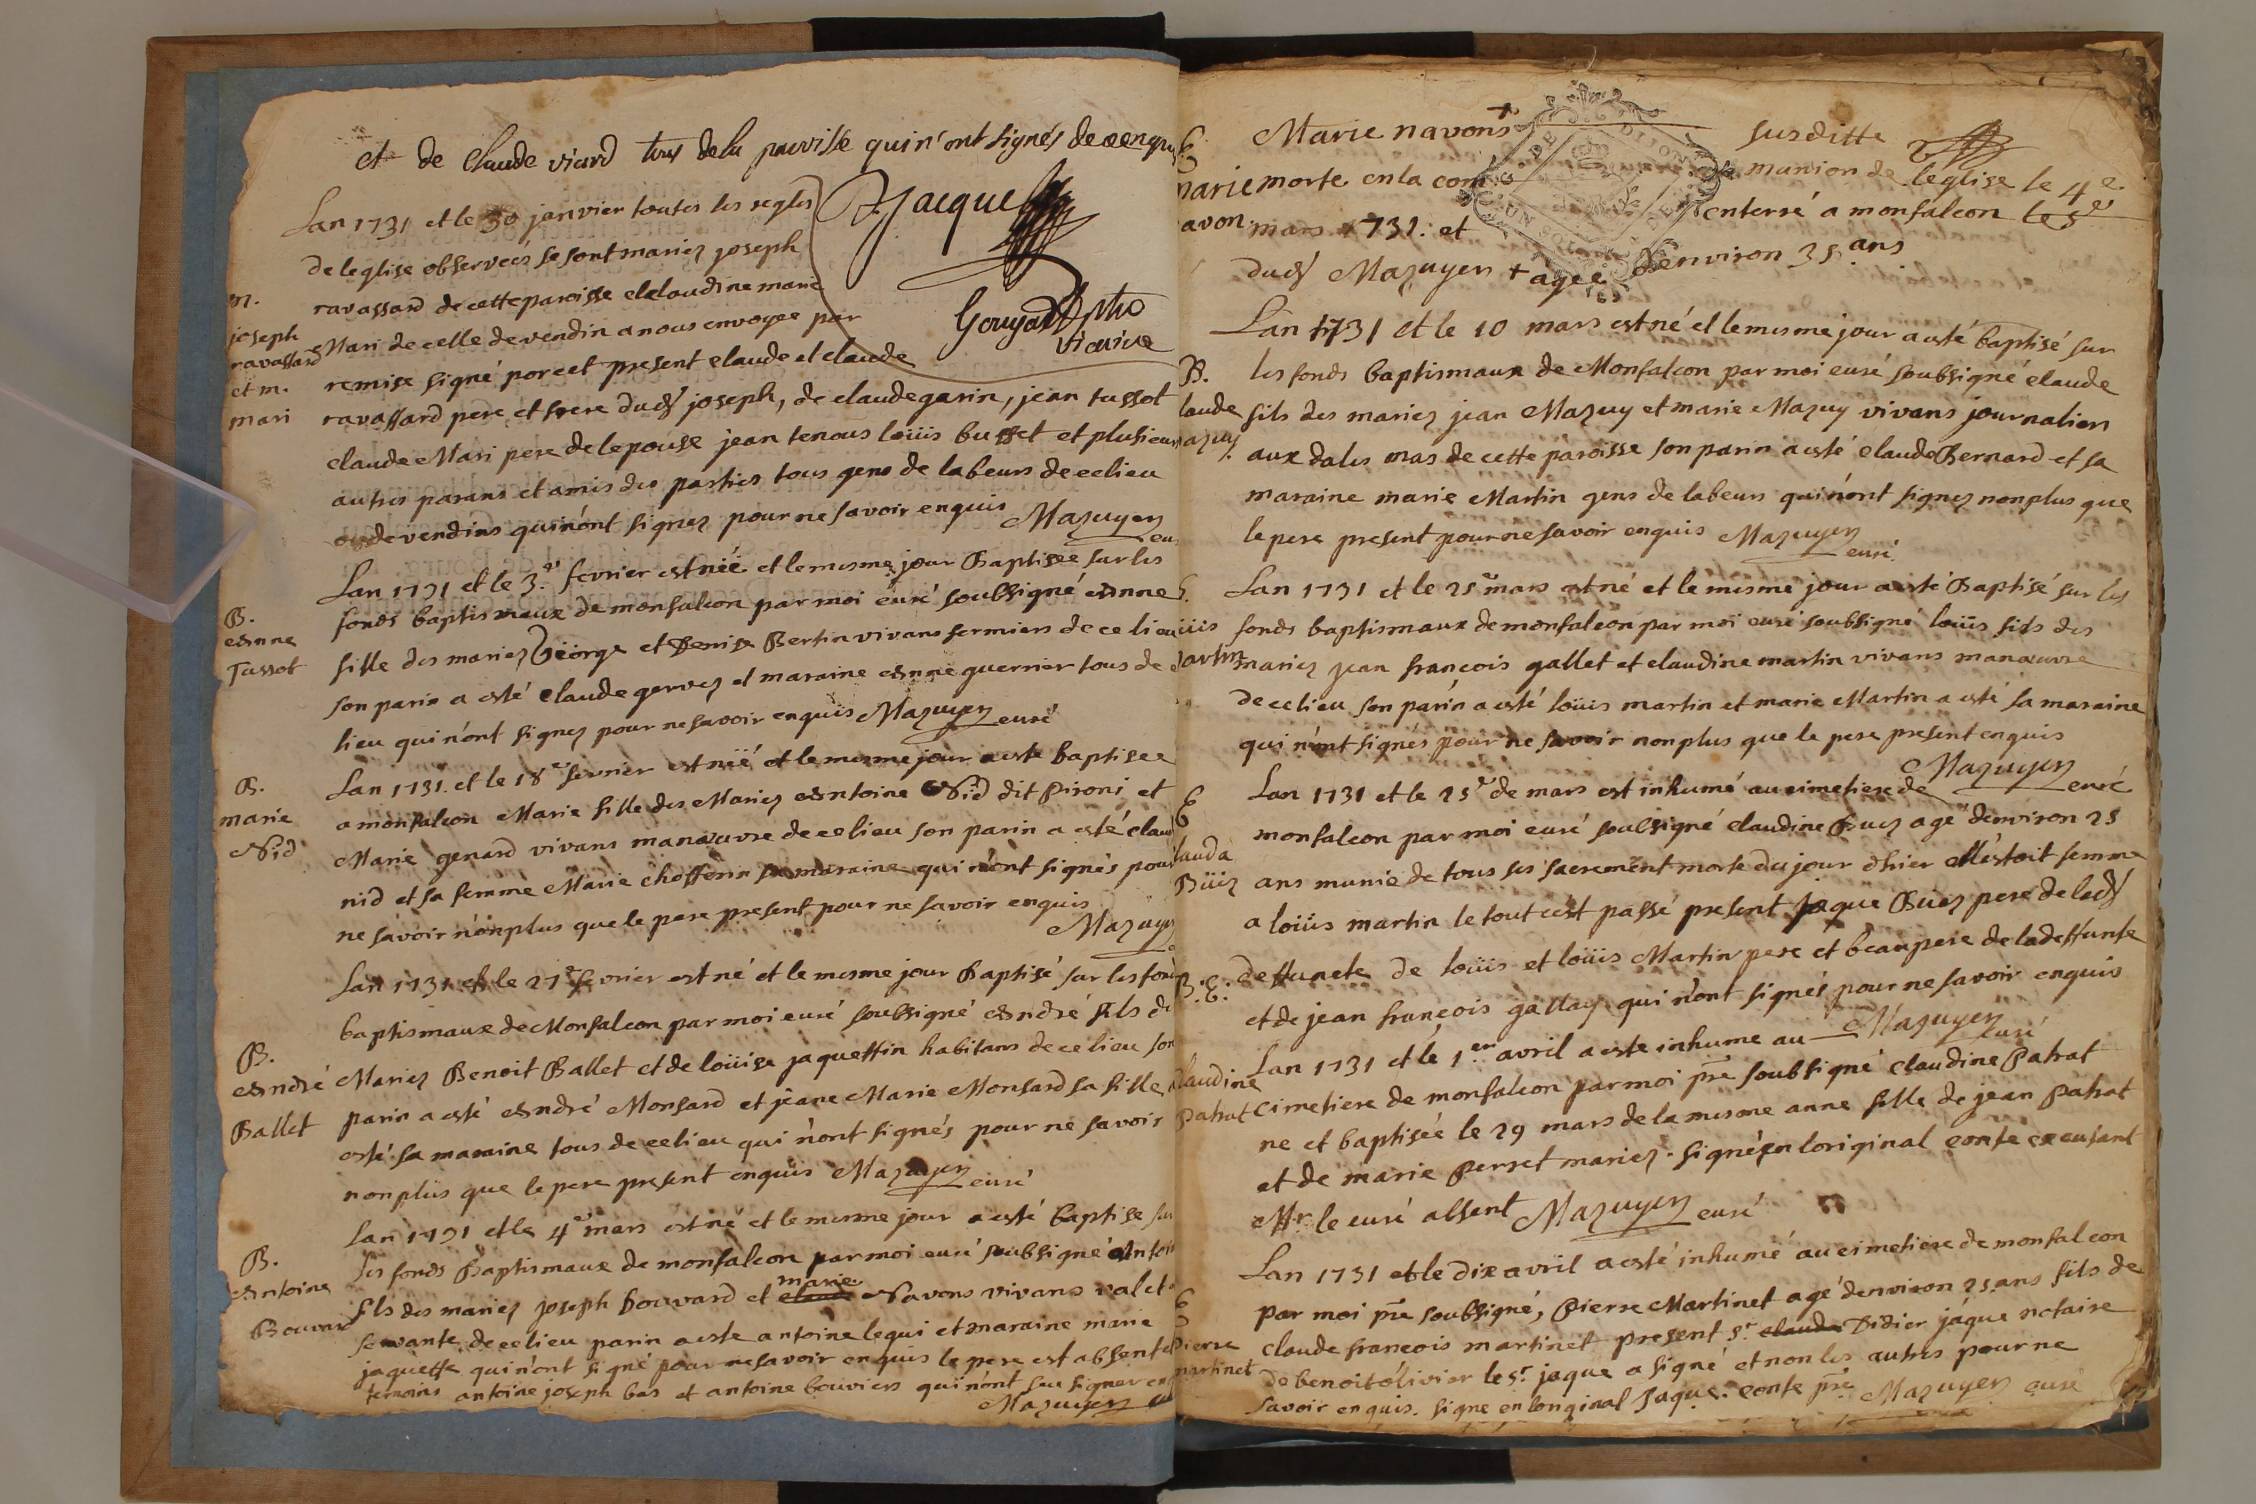 et de Claude viard tous de la paroisse qui n'ont signés de ce enquis
Jacque
Lan 1731 et le 30 janvier toutes les regles
de leglise observeés se sont mariez joseph
ravassard de cette paroisse et claudine marie
Mari de celle de vendin a nous envoyee par
Gouyard ptre
vicaire
remise signé porcet present claude et claude
ravassard pere et frere dud joseph, de claude garin, jean tussot
claude Mari pere de lepouse jean tenous loüis busset et plusieurs
autres parans et amis des parties tous gens de labeurs de ce lieu
ou de vendins qui n'ont signez pour ne savoir enquis Mazuyer
m.
joseph
ravassard
et m.
mari
Lan 1731 et le 3e fevrier est née et le mesme jour Baptisée sur les
fonds baptismaux de monfalcon par moi curé soubsigné Anne
fille des mariez George et Denise Bertin vivans fermiers de ce lieu
son parin a esté claude gervez et maraine Anne guernier tous de ce
lieu qui n'ont signez pour ne savoir enquis Mazuyer curé
B.
Anne
Tussot
Lan 1731. et le 18e fevrier est née et le mesme jour a esté baptisee
a monfalcon Marie fille des Mariez Antoine Nid dit Pironi et
Marie genard vivans manœuvre de ce lieu son parin a esté claude
nid et sa femme Marie choffenin sa maraine qui n'ont signés pour
ne sávoir nonplus que le pere present pour ne savoir enquis
Mazuyer
B.
marie
Nid
Lan 1731. et le 27e fevrier est né et le mesme jour Baptisé sur les fonds
baptismaux de Monfalcon par moi curé soubsigné André fils de
Mariez Benoit Ballet et de loüise jaquettin habitans de ce lieu son
parin a esté André Monsard et jeane Marie Monsard sa fille a
esté sa maraine tous de ce lieu qui n'ont signés pour ne savoir
nonplus que le pere present enquis Mazuyer curé
B.
André
Ballet
Lan 1731 et le 4e mars est né et le mesme jour a esté baptise sur
les fonds Baptismaux de monfalcon par moi curé soubsigné Antoine
marie
fils des mariez joseph bouvard et claude Navons vivans valet et
servante de ce lieu parin a este antoine lequi et maraine marie
jaquette qui n'ont signé pour ne savoir enquis le pere est absent
temoins antoine joseph bas et antoine bouviers qui n'ont seu signer
Mazuyer
B.
Antoine
Bouvard
Marie navons susditte
morte en la communion de leglise le 4e
mars 1731. et enterré a monfalcon le 5e
dud Mazuyer + ageé denviron 35 ans
DE DIJON
UN SOL
E
marie
navon
Lan 1731 et le 10 mars est né et le mesme jour a esté baptisé sur
les fonds baptismaux de Monfalcon par moi curé soubsigné claude
fils des mariez jean Mazuy et marie Mazuy vivans journalier
aux dales mas de cette paroisse son parin a esté claude Bernard et sa
maraine marie Martin gens de labeurs qui n'ont signez nonplus que
le pere present pour ne savoir enquis Mazuyer
curé
B.
laude
azuy
Lan 1731 et le 25e mars est né et le mesme jour a esté Baptisé sur les
fonds baptismaux de monfalcon par moi curé soubsigné loüis fils des
mariez jean francois gallet et claudine martin vivans manœuvre
de ce lieu son parin a esté loüis martin et marie Martin a esté sa maraine
qui n'ont signés pour ne savoir nonplus que le pere present enquis
Mazuyer
curé
Lan 1731 et le 25e de mars est inhumé au cimetiere de
monfalcon par moi curé soubsigné claudine Buez agé denviron 25
ans munie de tous ses sacrement morte du jour dhier elle estoit femme
a loüis martin le tout cest passé present jaque Buez pere de led
deffuncte de loüis et loüis Martin pere et beaupere de la deffunte
et de jean françois gallay qui n'ont signés pour ne savoir enquis
Mazuyer curé
E
lauda
Büiz
Lan 1731 et le 1er avril a este inhume au
cimetiere de monfalcon par moi pre soubsigné claudine Patrat
ne et baptiseé le 29 mars de la mesme anne fille de jean Patrat
et de marie Perret mariez. signé en loriginal conte excusant
Mr le curé absent Mazuyer curé
B. E.
laudine
Patrat
Lan 1731 et le dix avril a esté inhumé au cimetiere de monfalcon
par moi pre soubsigné, Pierre Martinet agé denviron 25 ans fils de
claude francois martinet present Sr claude Didier jáque notaire
de benoit ólivier le sr jaque a signé et non les autres pour ne
savoir enquis. signe en loriginal Jaque. conte pre Mazuyer curé
E
pierre
martinet